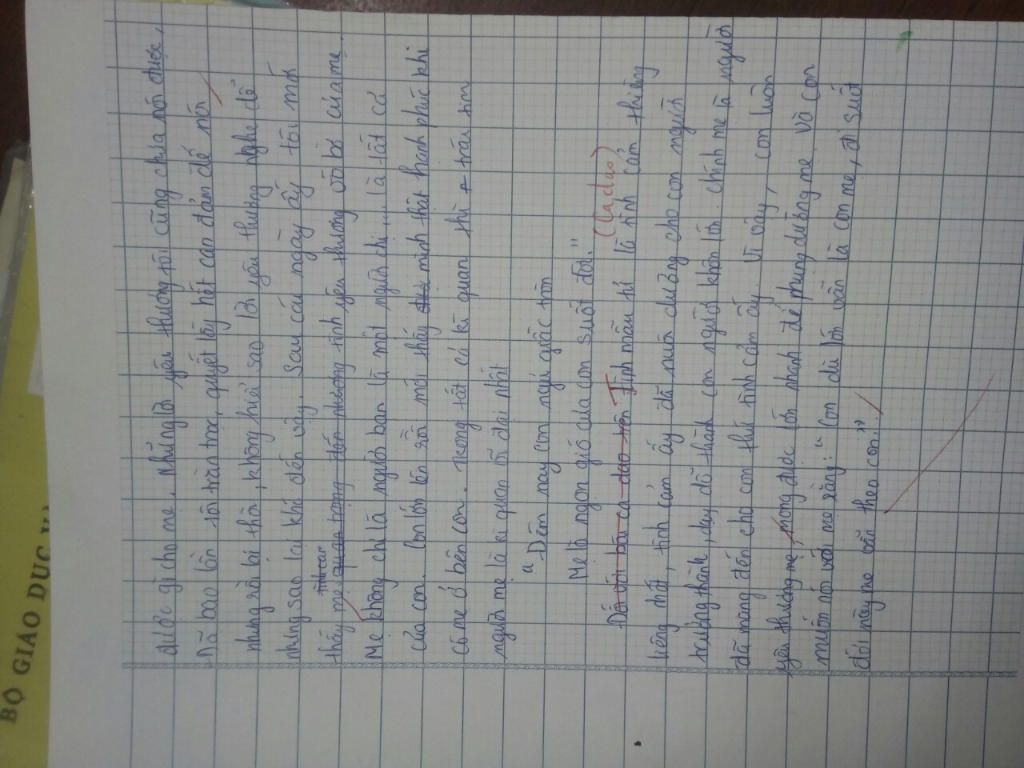 được gì cho mẹ. Những lời yêu thương tôi cũng chưa nói được,
Đã bao lần tôi trằn trọc, quyết lấy hết can đảm để nói
nhưng rồi lại thôi, không hiểu sao lời yêu thương nghe dễ
nhưng sao lại khó đến vậy. Sau cái ngày ấy tôi mới
thấy mẹ trong tình yêu thương vô bờ của mẹ.
Mẹ không chỉ là người bạn là một người chị.... là tất cả
của con. Con lớn lên rồi mới thấy mình thật hạnh phúc khi
có mẹ ở bên con. Trong tất cả kì quan thì trái tim
người mẹ là kì quan vĩ đại nhất
"Đêm nay con ngủ giấc tròn
Mẹ là ngọn gió của con suốt đời."
(Ca dao)
Tình mẫu tử là tình cảm thiêng
liêng nhất, tình cảm ấy đã nuôi dưỡng cho con người
trưởng thành, dạy dỗ thành con người khôn lớn. Chính mẹ là người
đã mang đến cho con thứ tình cảm ấy. Vì vậy, con luôn
yêu thương mẹ, mong được lớn nhanh để phụng dưỡng mẹ và con
muốn nói với mẹ rằng: "Con dù lớn vẫn là con mẹ, đi suốt
đời này mẹ vẫn theo con."
BỘ GIÁO DỤC V